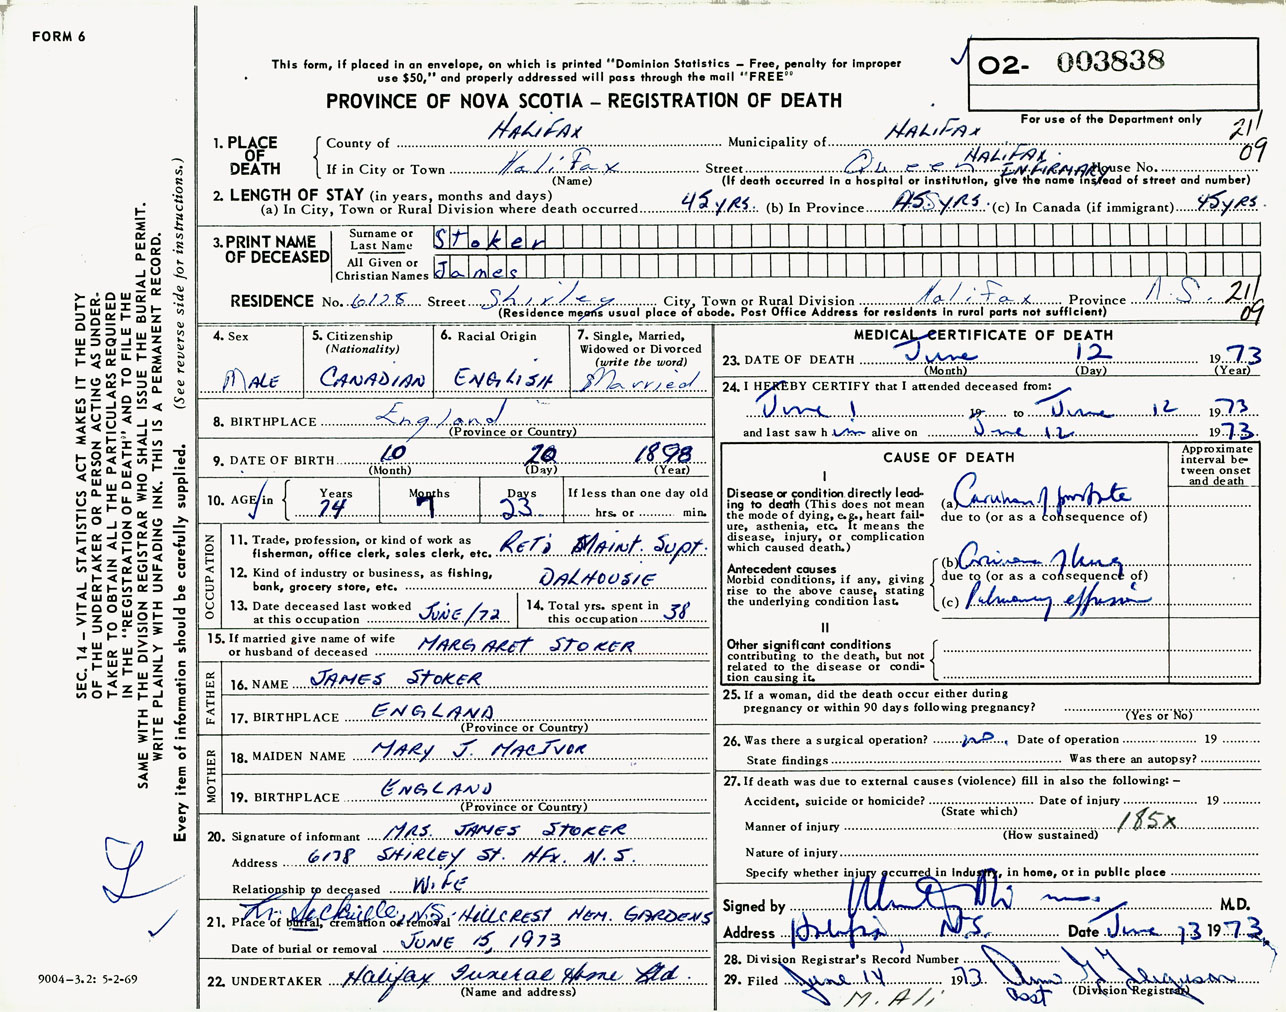 FORM 6
This form, if placed in an envelope, on which is printed "Dominion Statistics – Free, penalty for improper
use $50," and properly addressed will pass through the mail "FREE"
PROVINCE OF NOVA SCOTIA – REGISTRATION OF DEATH
O2- 003838
For use of the Department only
211
09
1. PLACE OF DEATH
County of HALIFAX Municipality of HALIFAX
If in City or Town Halifax Street Queen HALIFAX INFIRMARY House No.
(Name) (If death occurred in a hospital or institution, give the name instead of street and number)
2. LENGTH OF STAY (in years, months and days)
(a) In City, Town or Rural Division where death occurred 45 YRS. (b) In Province 45 YRS. (c) In Canada (if immigrant) 45 YRS.
3. PRINT NAME OF DECEASED
Surname or Last Name Stoker
All Given or Christian Names James
RESIDENCE No. 6178 Street Shirley City, Town or Rural Division Halifax Province N.S. 211
(Residence means usual place of abode. Post Office Address for residents in rural parts not sufficient) 09
4. Sex MALE
5. Citizenship (Nationality) CANADIAN
6. Racial Origin ENGLISH
7. Single, Married, Widowed or Divorced (write the word) Married
8. BIRTHPLACE England
(Province or Country)
9. DATE OF BIRTH 10 20 1898
(Month) (Day) (Year)
10. AGE in Years 74 Months 7 Days 23 If less than one day old hrs. or min.
OCCUPATION
11. Trade, profession, or kind of work as RET'D MAINT. SUPT.
fisherman, office clerk, sales clerk, etc.
12. Kind of industry or business, as fishing, DALHOUSIE
bank, grocery store, etc.
13. Date deceased last worked at this occupation JUNE/72
14. Total yrs. spent in this occupation 38
15. If married give name of wife or husband of deceased MARGARET STOKER
FATHER
16. NAME JAMES STOKER
17. BIRTHPLACE ENGLAND
(Province or Country)
MOTHER
18. MAIDEN NAME MARY J. MACIVOR
19. BIRTHPLACE ENGLAND
(Province or Country)
20. Signature of informant MRS. JAMES STOKER
Address 6178 SHIRLEY ST. HFX. N.S.
Relationship to deceased WIFE
Sackville, N.S.
21. Place of burial, cremation or removal HILLCREST MEM. GARDENS
Date of burial or removal JUNE 15, 1973
22. UNDERTAKER Halifax Funeral Home Ltd.
(Name and address)
MEDICAL CERTIFICATE OF DEATH
23. DATE OF DEATH June 12 1973
(Month) (Day) (Year)
24. I HEREBY CERTIFY that I attended deceased from:
June 1 19 to June 12 1973
and last saw him alive on June 12 1973
CAUSE OF DEATH
Approximate interval between onset and death
I
Disease or condition directly leading to death (This does not
mean the mode of dying, e.g., heart failure, asthenia, etc. It means the
disease, injury, or complication
which caused death.)
(a) Carcinoma of prostate
due to (or as a consequence of)
Antecedent causes
Morbid conditions, if any, giving
rise to the above cause, stating
the underlying condition last.
(b) Carcinoma of lung
due to (or as a consequence of)
(c) Pulmonary effusion
II
Other significant conditions
contributing to the death, but not
related to the disease or condition causing it.
25. If a woman, did the death occur either during
pregnancy or within 90 days following pregnancy?
(Yes or No)
26. Was there a surgical operation? no. Date of operation 19
State findings Was there an autopsy?
27. If death was due to external causes (violence) fill in also the following: –
Accident, suicide or homicide? Date of injury 19
(State which)
Manner of injury 185X
(How sustained)
Nature of injury
Specify whether injury occurred in Industry, in home, or in public place
Signed by M.D.
Address Halifax, N.S. Date June 13 1973
28. Division Registrar's Record Number
29. Filed June 14 1973 Ferguson
(Division Registrar)
M. Ali Asst
SEC. 14 – VITAL STATISTICS ACT MAKES IT THE DUTY
OF THE UNDERTAKER OR PERSON ACTING AS UNDER-
TAKER TO OBTAIN ALL THE PARTICULARS REQUIRED
IN THE "REGISTRATION OF DEATH" AND TO FILE THE
SAME WITH THE DIVISION REGISTRAR WHO SHALL ISSUE THE BURIAL PERMIT.
WRITE PLAINLY WITH UNFADING INK. THIS IS A PERMANENT RECORD.
Every item of information should be carefully supplied. (See reverse side for instructions.)
9004-3.2: 5-2-69